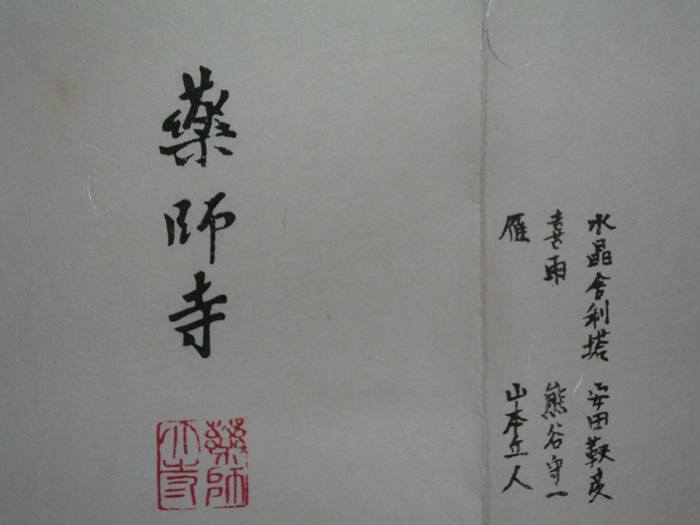 水晶舎利塔 安田靫彦
喜雨 熊谷守一
雁 山本丘人
藥師寺
藥師
大寺